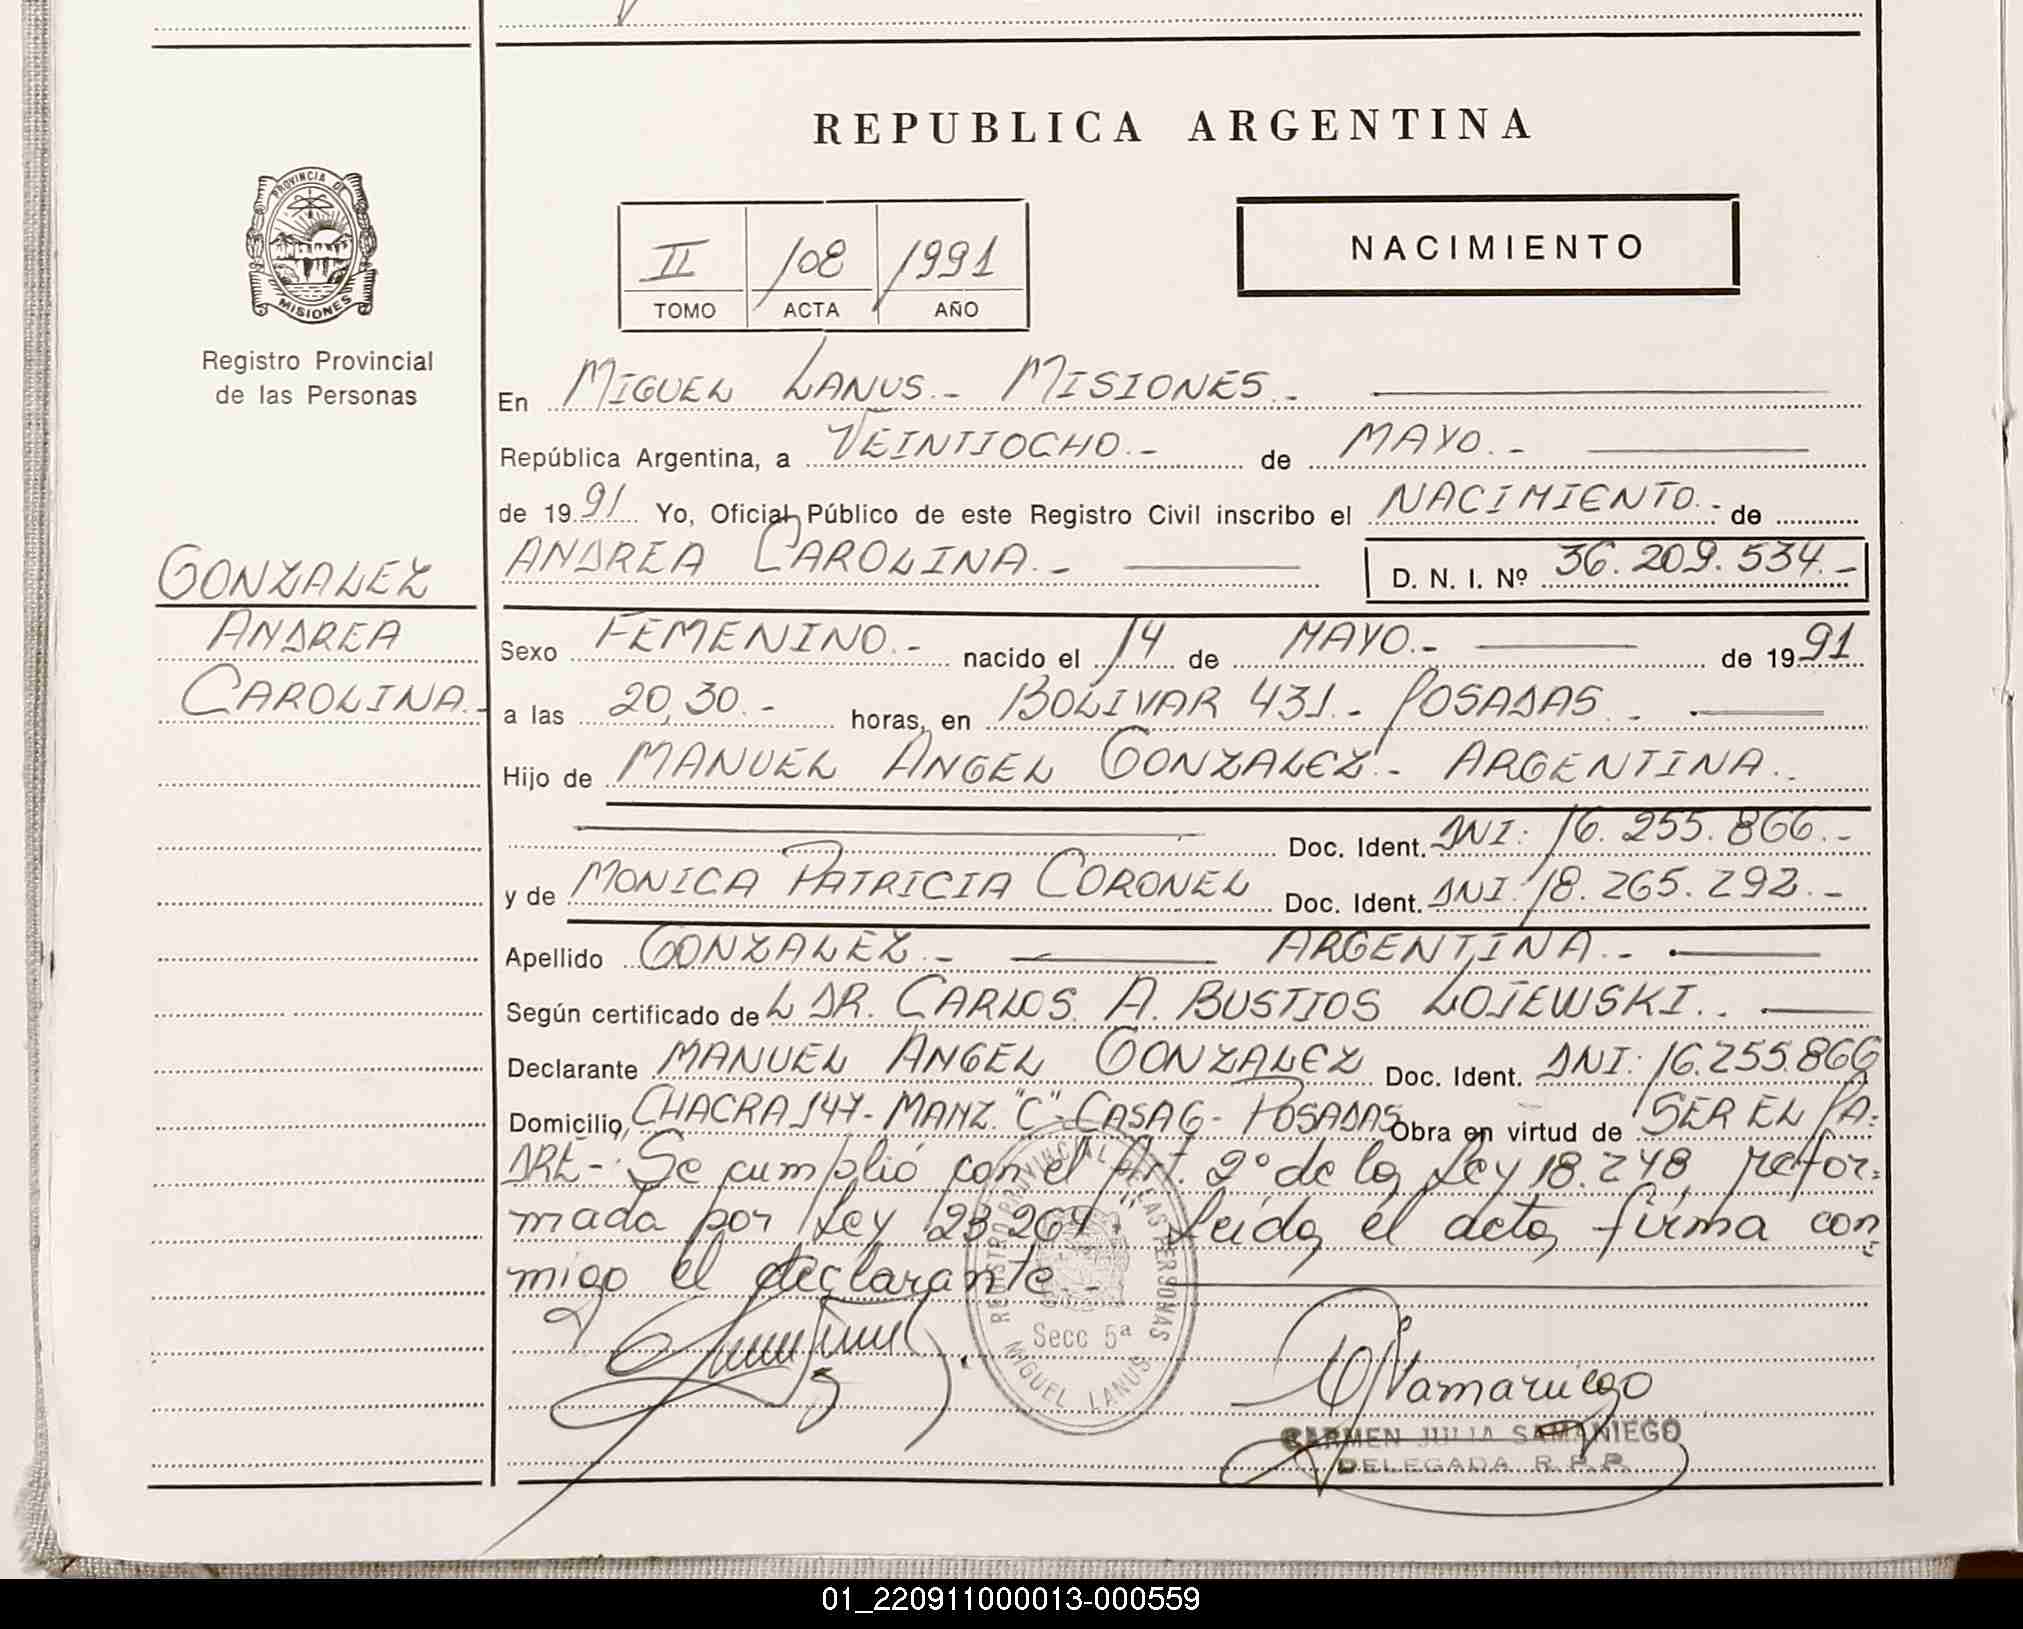 REPUBLICA ARGENTINA
PROVINCIA DE
MISIONES
Registro Provincial
de las Personas
II 108 1991
TOMO ACTA AÑO
NACIMIENTO
En MIGUEL LANUS.- MISIONES.-
República Argentina, a VEINTIOCHO.- de MAYO.-
de 1991 Yo, Oficial Público de este Registro Civil inscribo el NACIMIENTO.- de
GONZALEZ
ANDREA
CAROLINA.-
ANDREA CAROLINA.- D. N. I. Nº 36.209.534.-
Sexo FEMENINO.- nacido el 14 de MAYO.- de 1991
a las 20,30.- horas, en BOLIVAR 431.- POSADAS.-
Hijo de MANUEL ANGEL GONZALEZ.- ARGENTINA.-
Doc. Ident. DNI: 16.255.866.-
y de MONICA PATRICIA CORONEL Doc. Ident. DNI: 18.265.292.-
Apellido GONZALEZ.- ARGENTINA.-
Según certificado de L DR. CARLOS A. BUSTIOS LOJEWSKI.-
Declarante MANUEL ANGEL GONZALEZ Doc. Ident. DNI: 16.255.866
Domicilio, CHACRA 147- MANZ. "C"- CASA 6- POSADAS Obra en virtud de SER EL PA-
DRE-. Se cumplió con el Art. 2º de la Ley 18.248, refor-
mada por Ley 23.264." Leída el acta, firma con-
migo el declarante.-
REGISTRO PROVINCIAL DE LAS PERSONAS
Secc 5ª
MIGUEL LANUS
CARMEN JULIA SAMANIEGO
DELEGADA R.P.P.
01_220911000013-000559